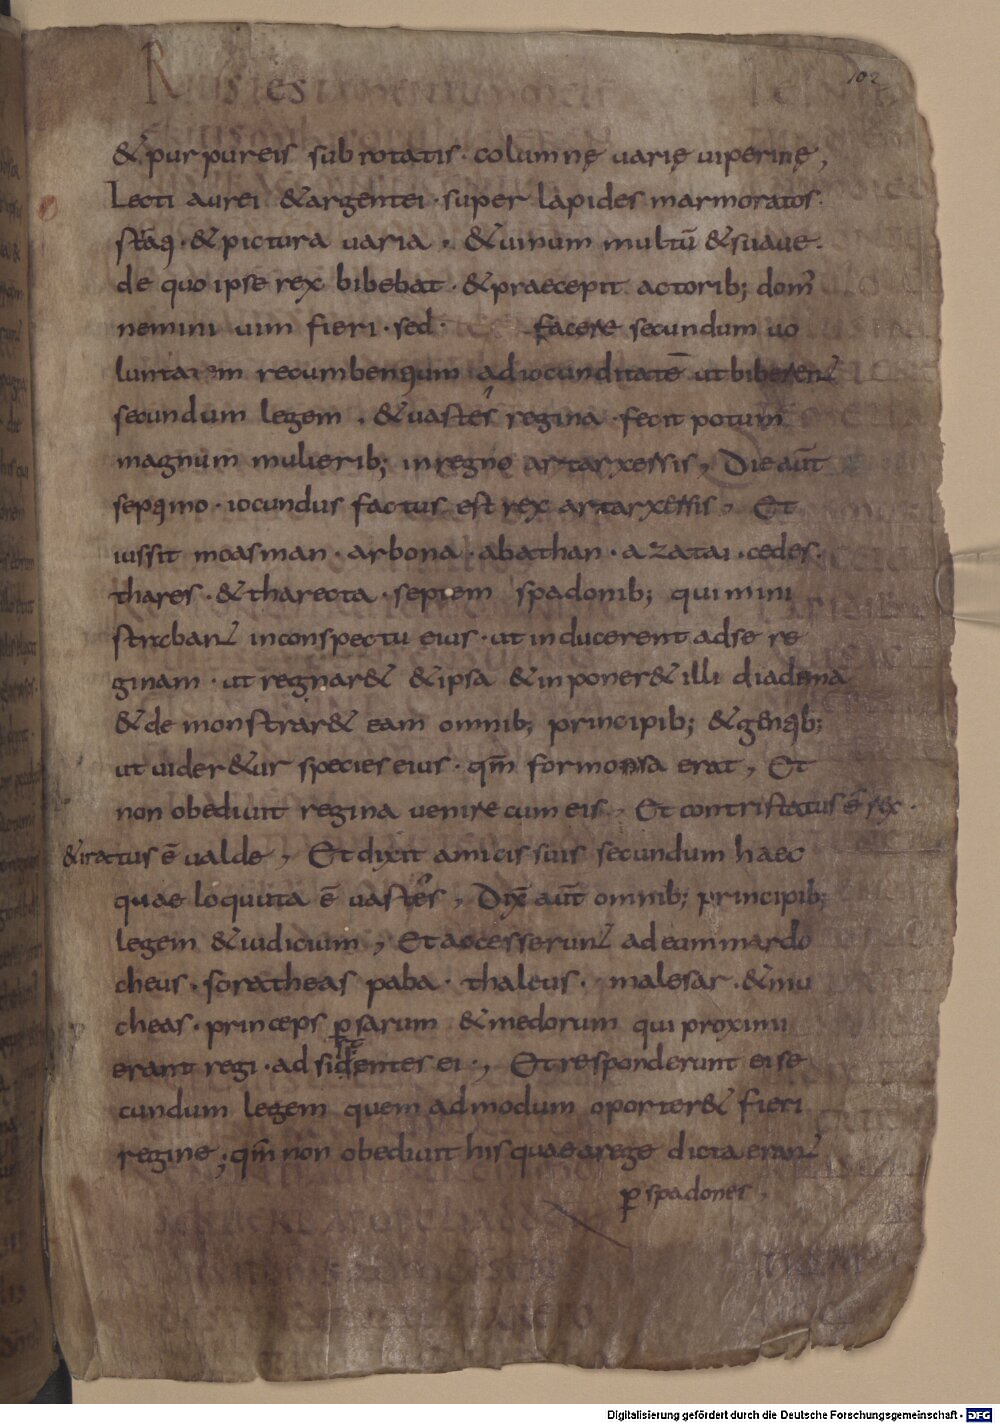 102
& purpureis sub rotatis · columnę varię viperinę,
Lecti aurei & argentei · super lapides marmoratos·
& pictura varia · & vinum multū & suave·
de quo ipse rex bibebat · & praecepit actorib; dom̄
nemini vim fieri · sed · facere secundum vo
recumbentium ad iocunditatē ut biberent
secundum legem · & vastes regina · fecit potum
magnum mulierib; in regno artarxessis, Die aūt
septimo · iocundus factus est rex artarxessis, Et
iussit moasman · arbona · abathan · azatai · cedes·
thares · & tharecta · septem spadonib; qui mini
strabant in conspectu eius · ut inducerent ad se re
ginam · ut regnar& & ipsa & inponer& illi diadema
& demonstrar& eam omnib; principib; & gentib;
ut vider&ur species eius · qm̄ formonsa erat, Et
non obedivit regina venire cum eis, Et contristatus ē rex ·
& iratus ē valde, Et dixit amicis suis secundum haec
quae loquuta ē vastes, Dix̄ aūt omnib; principib;
legem & iudicium, Et accesserunt ad eum mardo
cheus · soratheas paba · thaleus · malesar · & mu
cheas · princeps ꝑsarum & medorum qui proximi
erant regi · adsidentes ei ·, Et responderunt ei se
cundum legem quem admodum oporter& fieri
regine; qm̄ non obedivit his quae a rege dicta erant
ꝑ spadones,
Digitalisierung gefördert durch die Deutsche Forschungsgemeinschaft - DFG